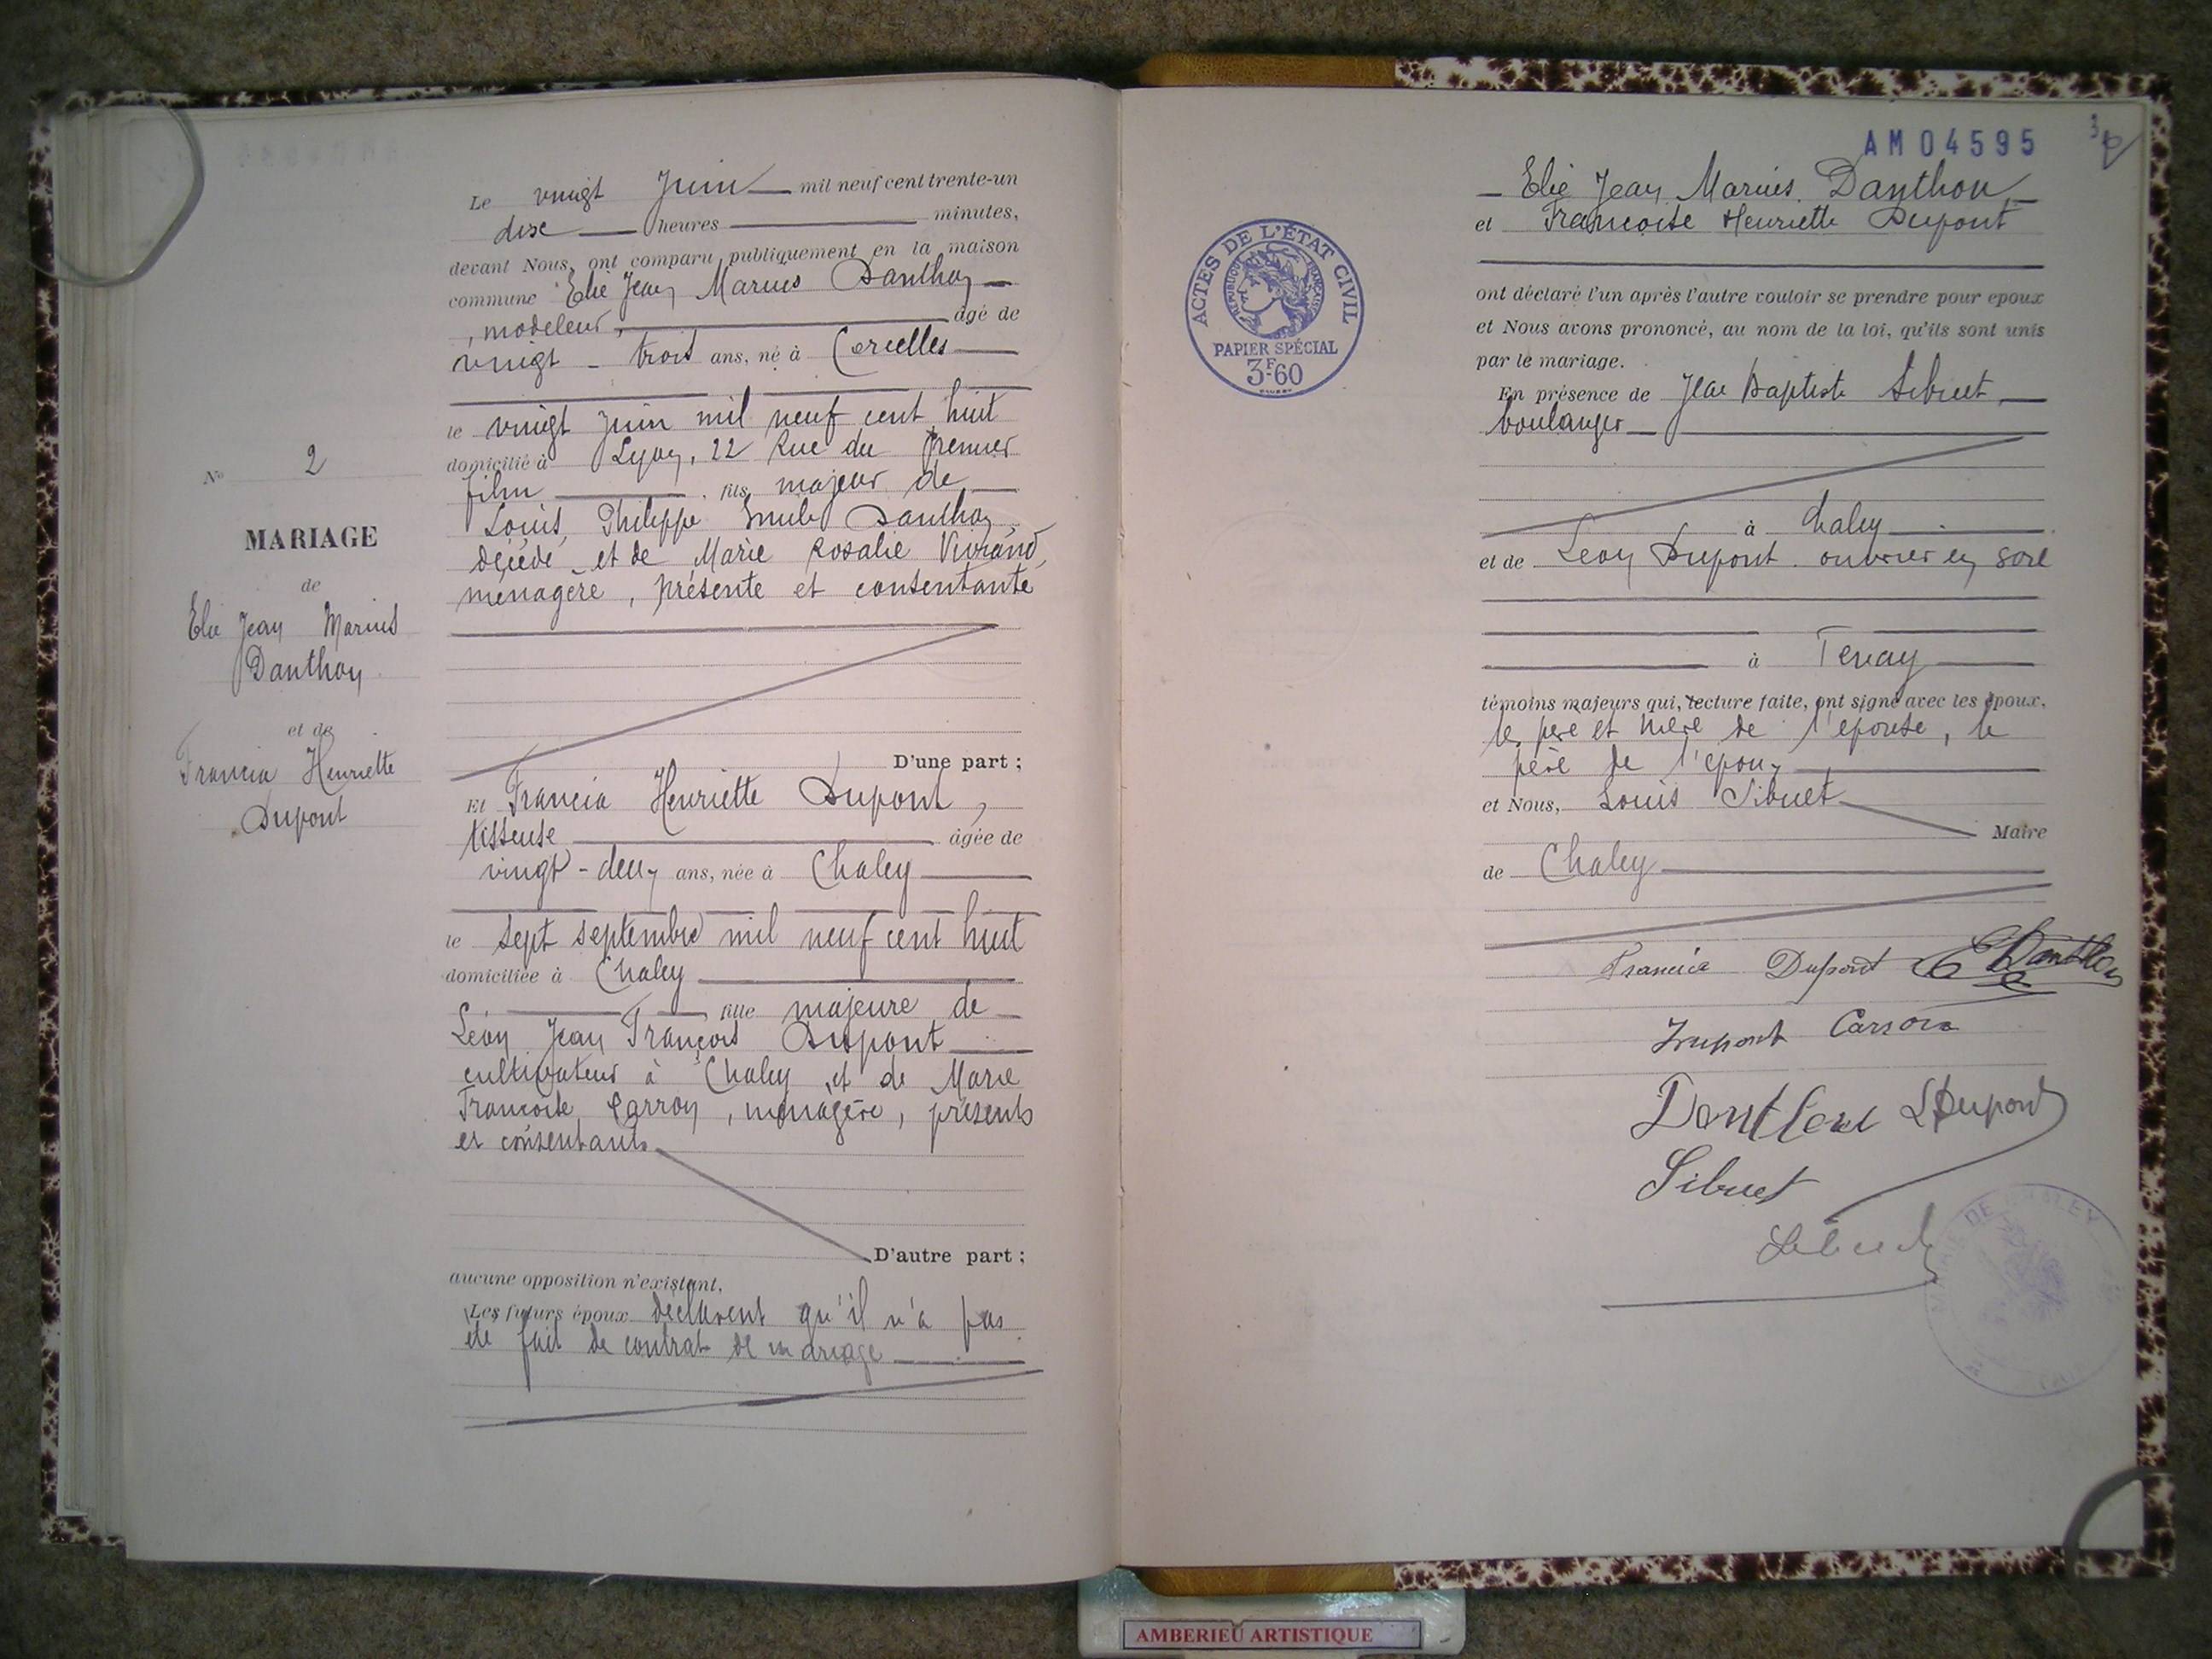 N° 2
MARIAGE
de
Elie Jean Marius
Danthon
et de
Francia Henriette
Dupont
Le vingt Juin mil neuf cent trente-un
dix heures minutes,
devant Nous, ont comparu publiquement en la maison
commune Elie Jean Marius Danthon
, modeleur, âgé de
vingt - trois ans, né à Corcelles
le vingt juin mil neuf cent huit
domicilié à Lyon, 22 Rue du Premier
film , fils majeur de
Louis Philippe Emile Danthon
décédé et de Marie Rosalie
ménagère, présente et consentante
D'une part ;
Et Francia Henriette Dupont,
tisseuse âgée de
vingt - deux ans, née à Chaley
le sept septembre mil neuf cent huit
domiciliée à Chaley
fille majeure de
Léon Jean François Dupont
cultivateur à Chaley et de Marie
Francoise Carron, ménagère, présents
et consentants
D'autre part ;
aucune opposition n'existant,
Les futurs époux déclarent qu'il n'a pas
été fait de contrat de mariage
AM04595
Elie Jean Marius Danthon
et Francoise Henriette Dupont
ont déclaré l'un après l'autre vouloir se prendre pour epoux
et Nous avons prononcé, au nom de la loi, qu'ils sont unis
par le mariage.
En présence de Jean Baptiste Sibuet
boulanger
à Chaley
et de Léon Dupont ouvrier en soie
à Tenay
témoins majeurs qui, lecture faite, ont signé avec les époux,
le père et mère de l'épouse, le
père de l'époux
et Nous, Louis Sibuet
Maire
de Chaley
Francia Dupont E Danthon
Dupont Carron
Danthon LDupont
Sibuet
Sibuet
ACTES DE L'ÉTAT CIVIL
RÉPUBLIQUE FRANÇAISE
PAPIER SPÉCIAL
3F60
AMBERIEU ARTISTIQUE